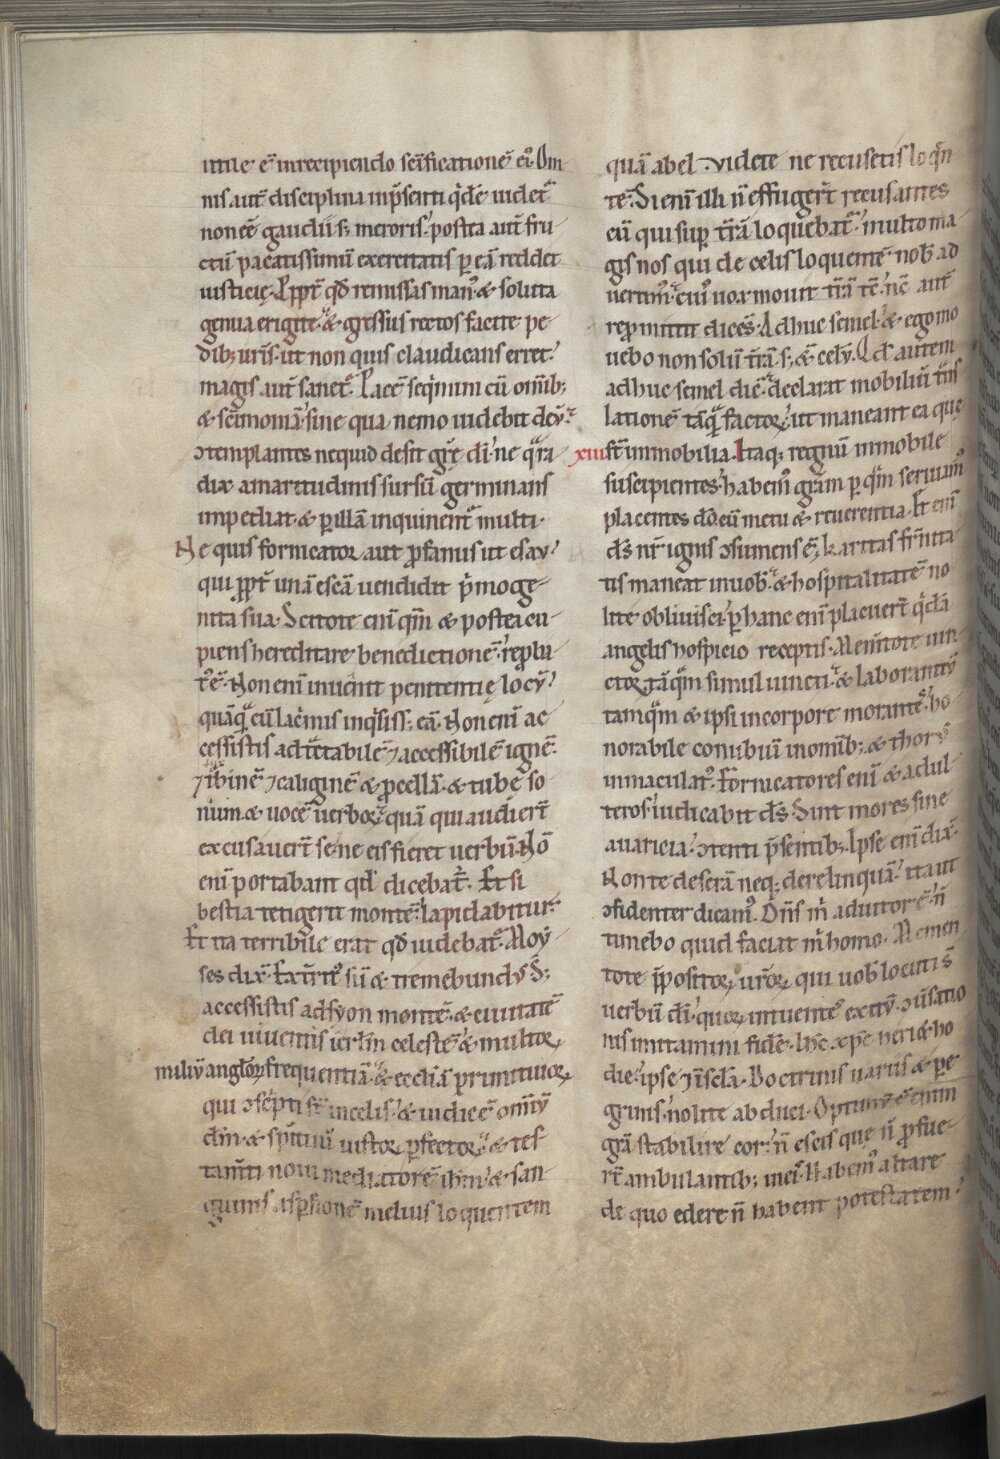 utile ē inrecipiendo sc̄ificationē eiꝰ. Om
nis aut̄ disciplina inp̄senti q̇dē uidet᷑
non eē gaudii s; meroris. postea aut̄ fru
ctū pacatissimū exercitatis ꝑ eā reddet
iusticię. Ꝓpt̄ qd̄ remissas manꝰ & soluta
genua erigite. & gressus rectos facite pe
dib; uris. ut non quis claudicans erret.
magis aut̄ sanet᷑. Pacē seq̇mini cū omīb;
& sc̄imoniā sine qua nemo uidebit deū.
ↄtemplantes nequid desit gr̄ę dī. ne q̄ ra
dix amaritudinis sursū germinans
impediat. & ꝑ illā inquinent᷑ multi.
Ne quis fornicator aut ꝓfanus ut esau.
qui ꝓpt̄ unā escā uendidit ṗmoge
nita sua. Scitote enī qm̄ & postea cu
piens hereditare benedictionē. reproba
tꝰ ē. Non enī inuenit penitentię locū.
quāq̄ cū lac̄mis inq̇siss; eā. Non enī ac
cessistis ad tc̄tabilē ⁊ accessibilē ignē.
⁊ t᷑binē ⁊ caliginē & ꝓcellā. & tubę so
num & uocē uerboꝝ. quā qui audier̄t
excusauer̄t se. ne eis fieret uerbū. Nō
enī portabant qd̄ dicebat᷑. Et si
bestia tetigerit montē. lapidabitur.
Et ita terribile erat qd̄ uidebat᷑. Moy
ses dix̄. Ext̄ritꝰ sū & tremebundus. S;
accessistis ad syon montē. & ciuitatē
dei uiuentis ierlm̄ celestē. & multoꝝ
miliū angloꝝ frequentiā. & ecclīā primitiuoꝝ
qui ↄsc̄pti st̄ incelis. & iudicē omīū
dm̄. & spīrituū iustoꝝ ꝑfectoꝝ. & tes
tam̄ti noui mediatorē ihm̄. & san
guinis aspersionē melius loquentem
quā abel. Videte ne recusetis loq̄n
tē. Si enī illi n̄ effuger̄t recusantes
eū qui suꝑ t̄rā loquebat᷑. multo ma
gis nos qui de celis loquentē nob̄ ad
uertimꝰ. cuiꝰ uox mouit t̄rā tc̄. nc̄ aut̄
repmittit dicēs. Adhuc semel. & ego mo
uebo non solū t̄rā. s; & celū. Qd̄ autem
adhuc semel dic̄. declarat mobiliū t̄ns
lationē tāq̄ factoꝝ. ut maneant ea que
xiii st̄ inmobilia. Itaq; regnū inmobile
suscipientes. habemꝰ grām ꝑ q̄m seruiamꝰ
placentes dō. cū metu & reuerentia. Et enī
ds̄ nr̄ ignis ↄsumens ē. Karitas fr̄nita
tis maneat inuob̄. & hospitalitatē no
lite obliuisci. ꝑ hanc enī placuer̄t q̇dā
angelis hospicio receptis. Mem̄tote uin
ctoꝝ tāq̄m simul uincti. & laborantiū
tamq̄m & ipsi incorpore morantes. Ho
norabile conubiū inomīb; & thorus
inmaculatꝰ. Fornicatores enī & adul
teros iudicabit ds̄. Sint mores sine
auaricia. ↄtenti p̄sentib;. Ipse enī dix̄.
Non te deserā neq; derelinquā. ita ut
ↄfidenter dicamꝰ. Dn̄s m̄ adiutor ē. n̄
timebo quid faciat m̄ homo. Memen
tote p̄positoꝝ uroꝝ. qui uob̄ locuti s̄
uerbū dī. quoꝝ intuentes exitū ↄūsatio
nis imitamini fidē. Ihc̄ xpc̄ heri & ho
die. ipse ⁊ in sc̄la. Doctrinis uariis & pe
grinis nolite abduci. Optimū ē enim
grā stabilire cor. n̄ escis que n̄ ꝓfue
rt̄ ambulantib; ineis. Habemꝰ altare
de quo edere n̄ habent potestatem.